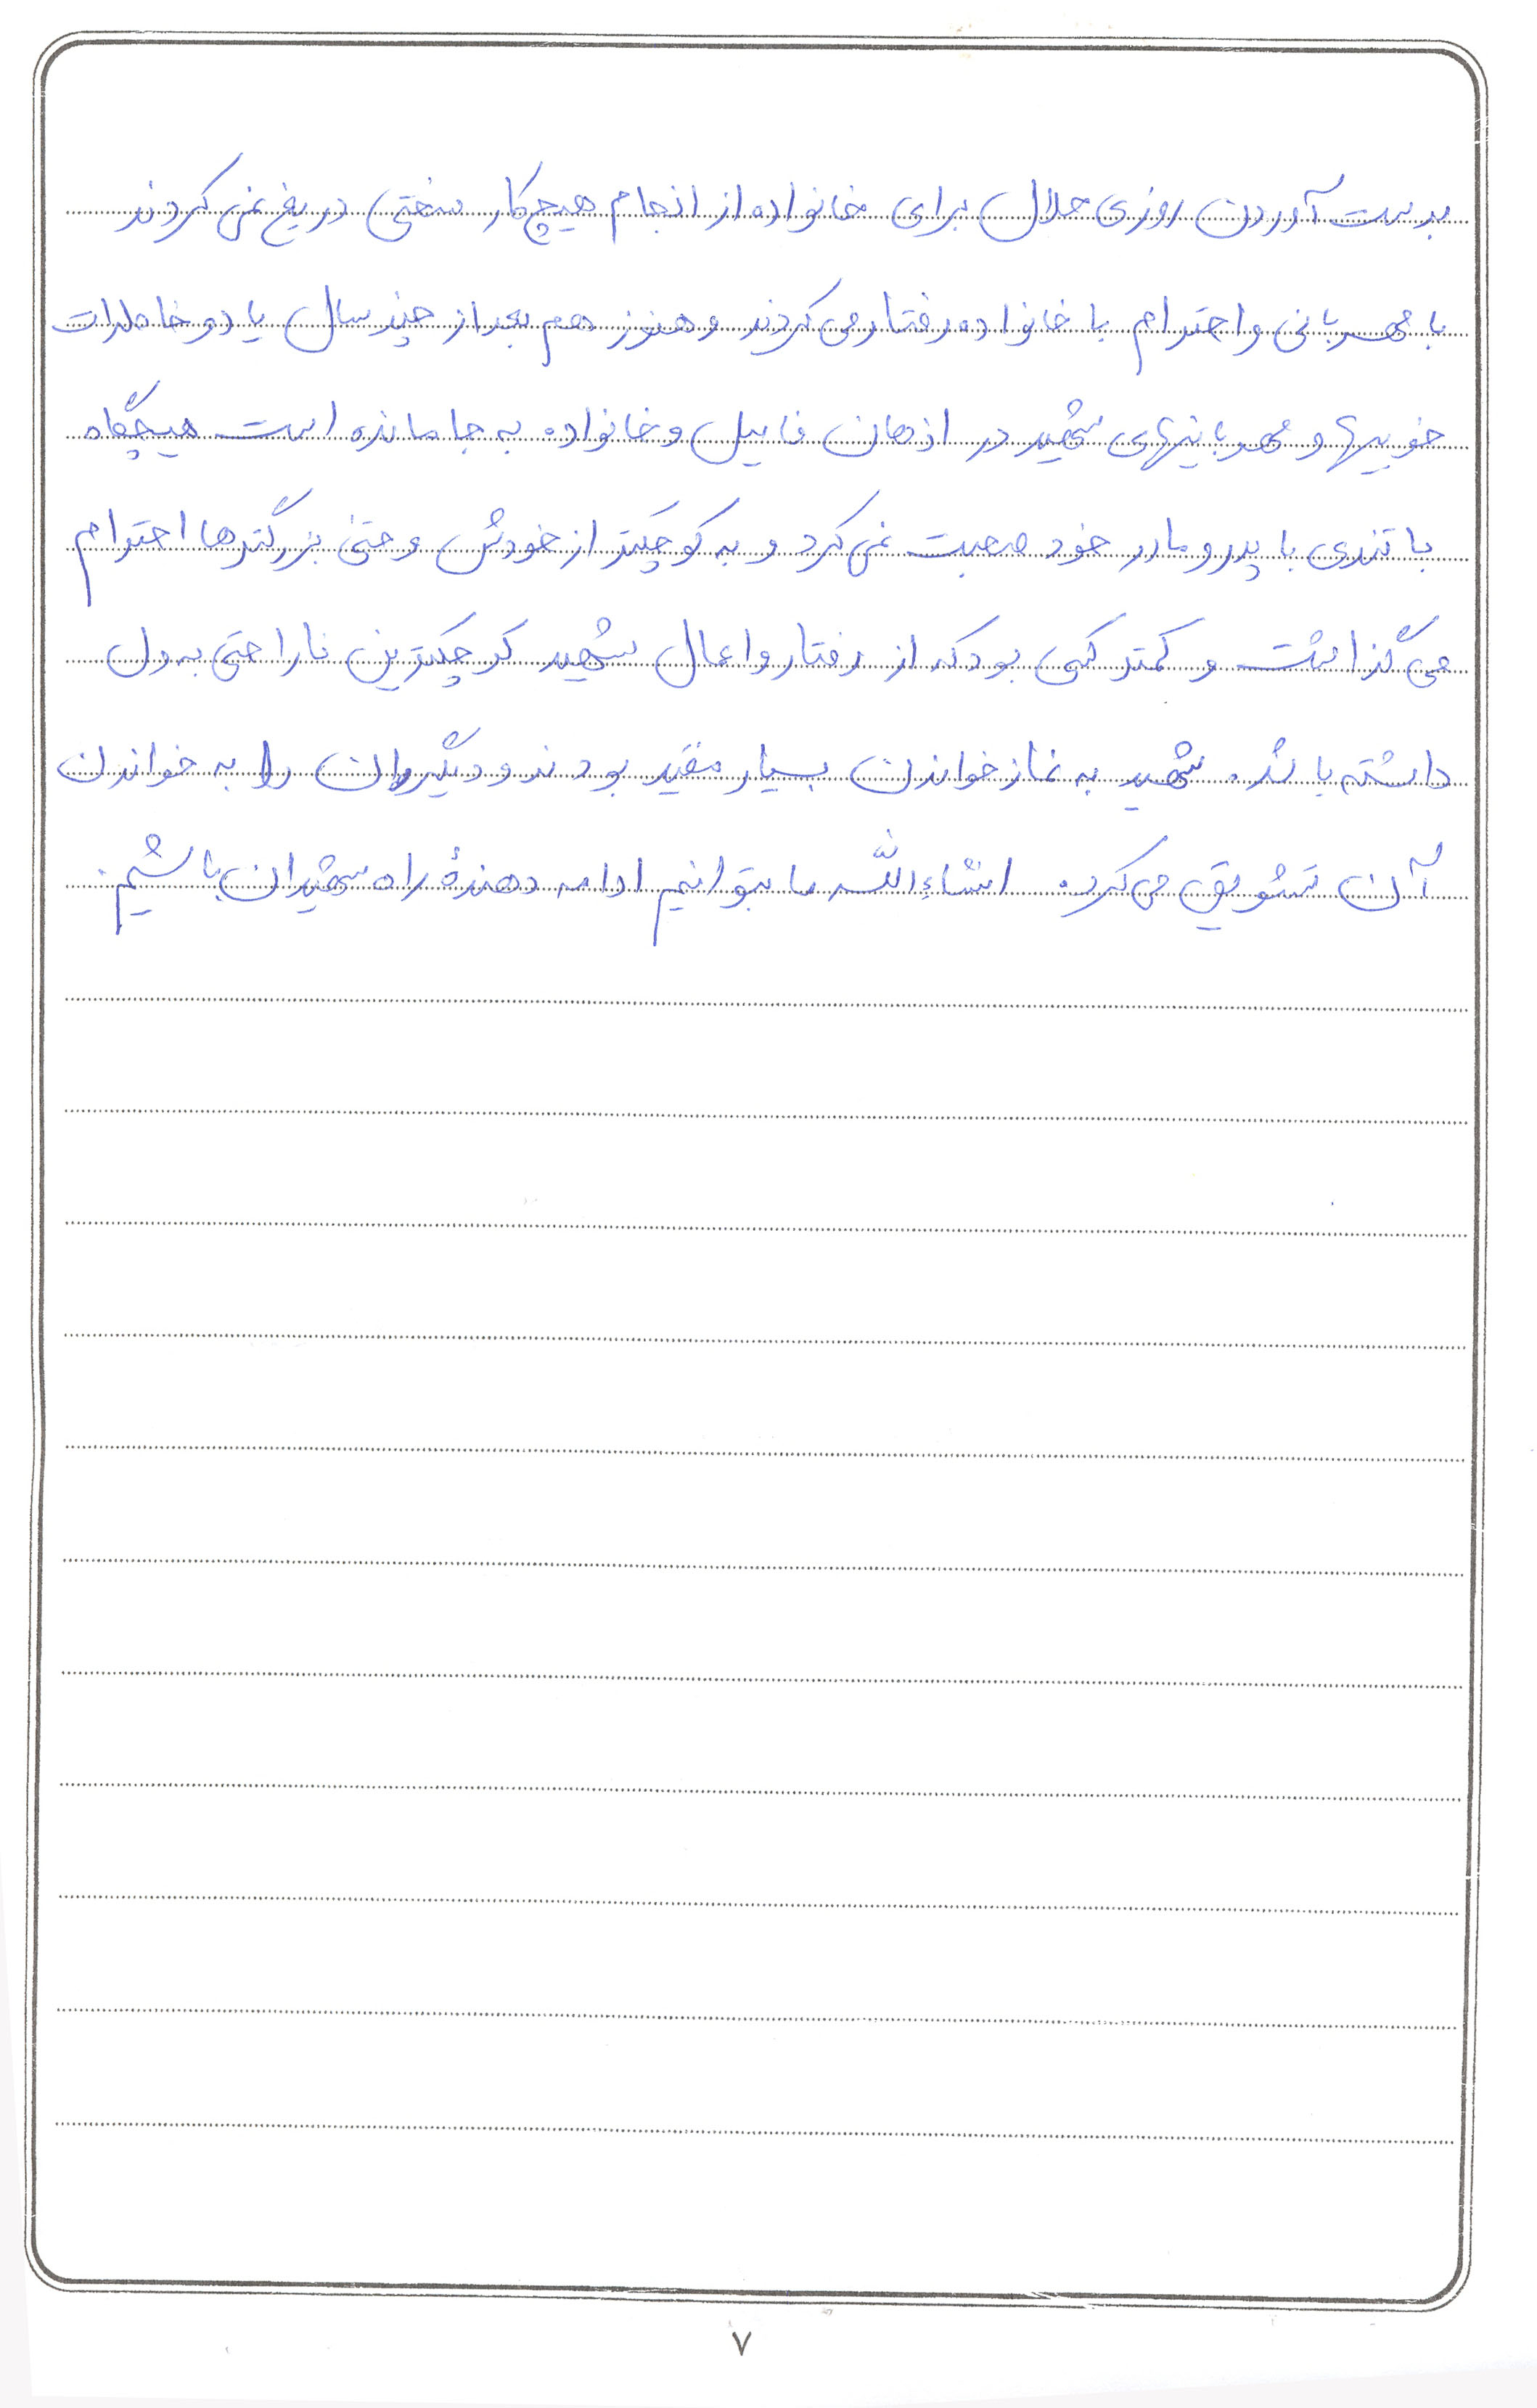 بدست آوردن روزی حلال برای خانواده از انجام هیچ کار سختی دریغ نمی کردند
با مهربانی و احترام با خانواده رفتار می کردند و هنوز هم بعد از چند سال یا دو خاطرات
خوبیها و مهربانیهای شهید در اذهان فامیل و خانواده به جا مانده است هیچگاه
با تندی با پدر و مادر خود صحبت نمی کرد و به کوچکتر از خودش و حتی بزرگترها احترام
می گذاشت و کمتر کسی بود که از رفتار و اعمال شهید کوچکترین ناراحتی به دل
داشته باشد. شهید به نماز خواندن بسیار مقید بودند و دیگران را به خواندن
آن تشویق می کرد. انشاءالله ما بتوانیم ادامه دهندهٔ راه شهیدان باشیم.
۷